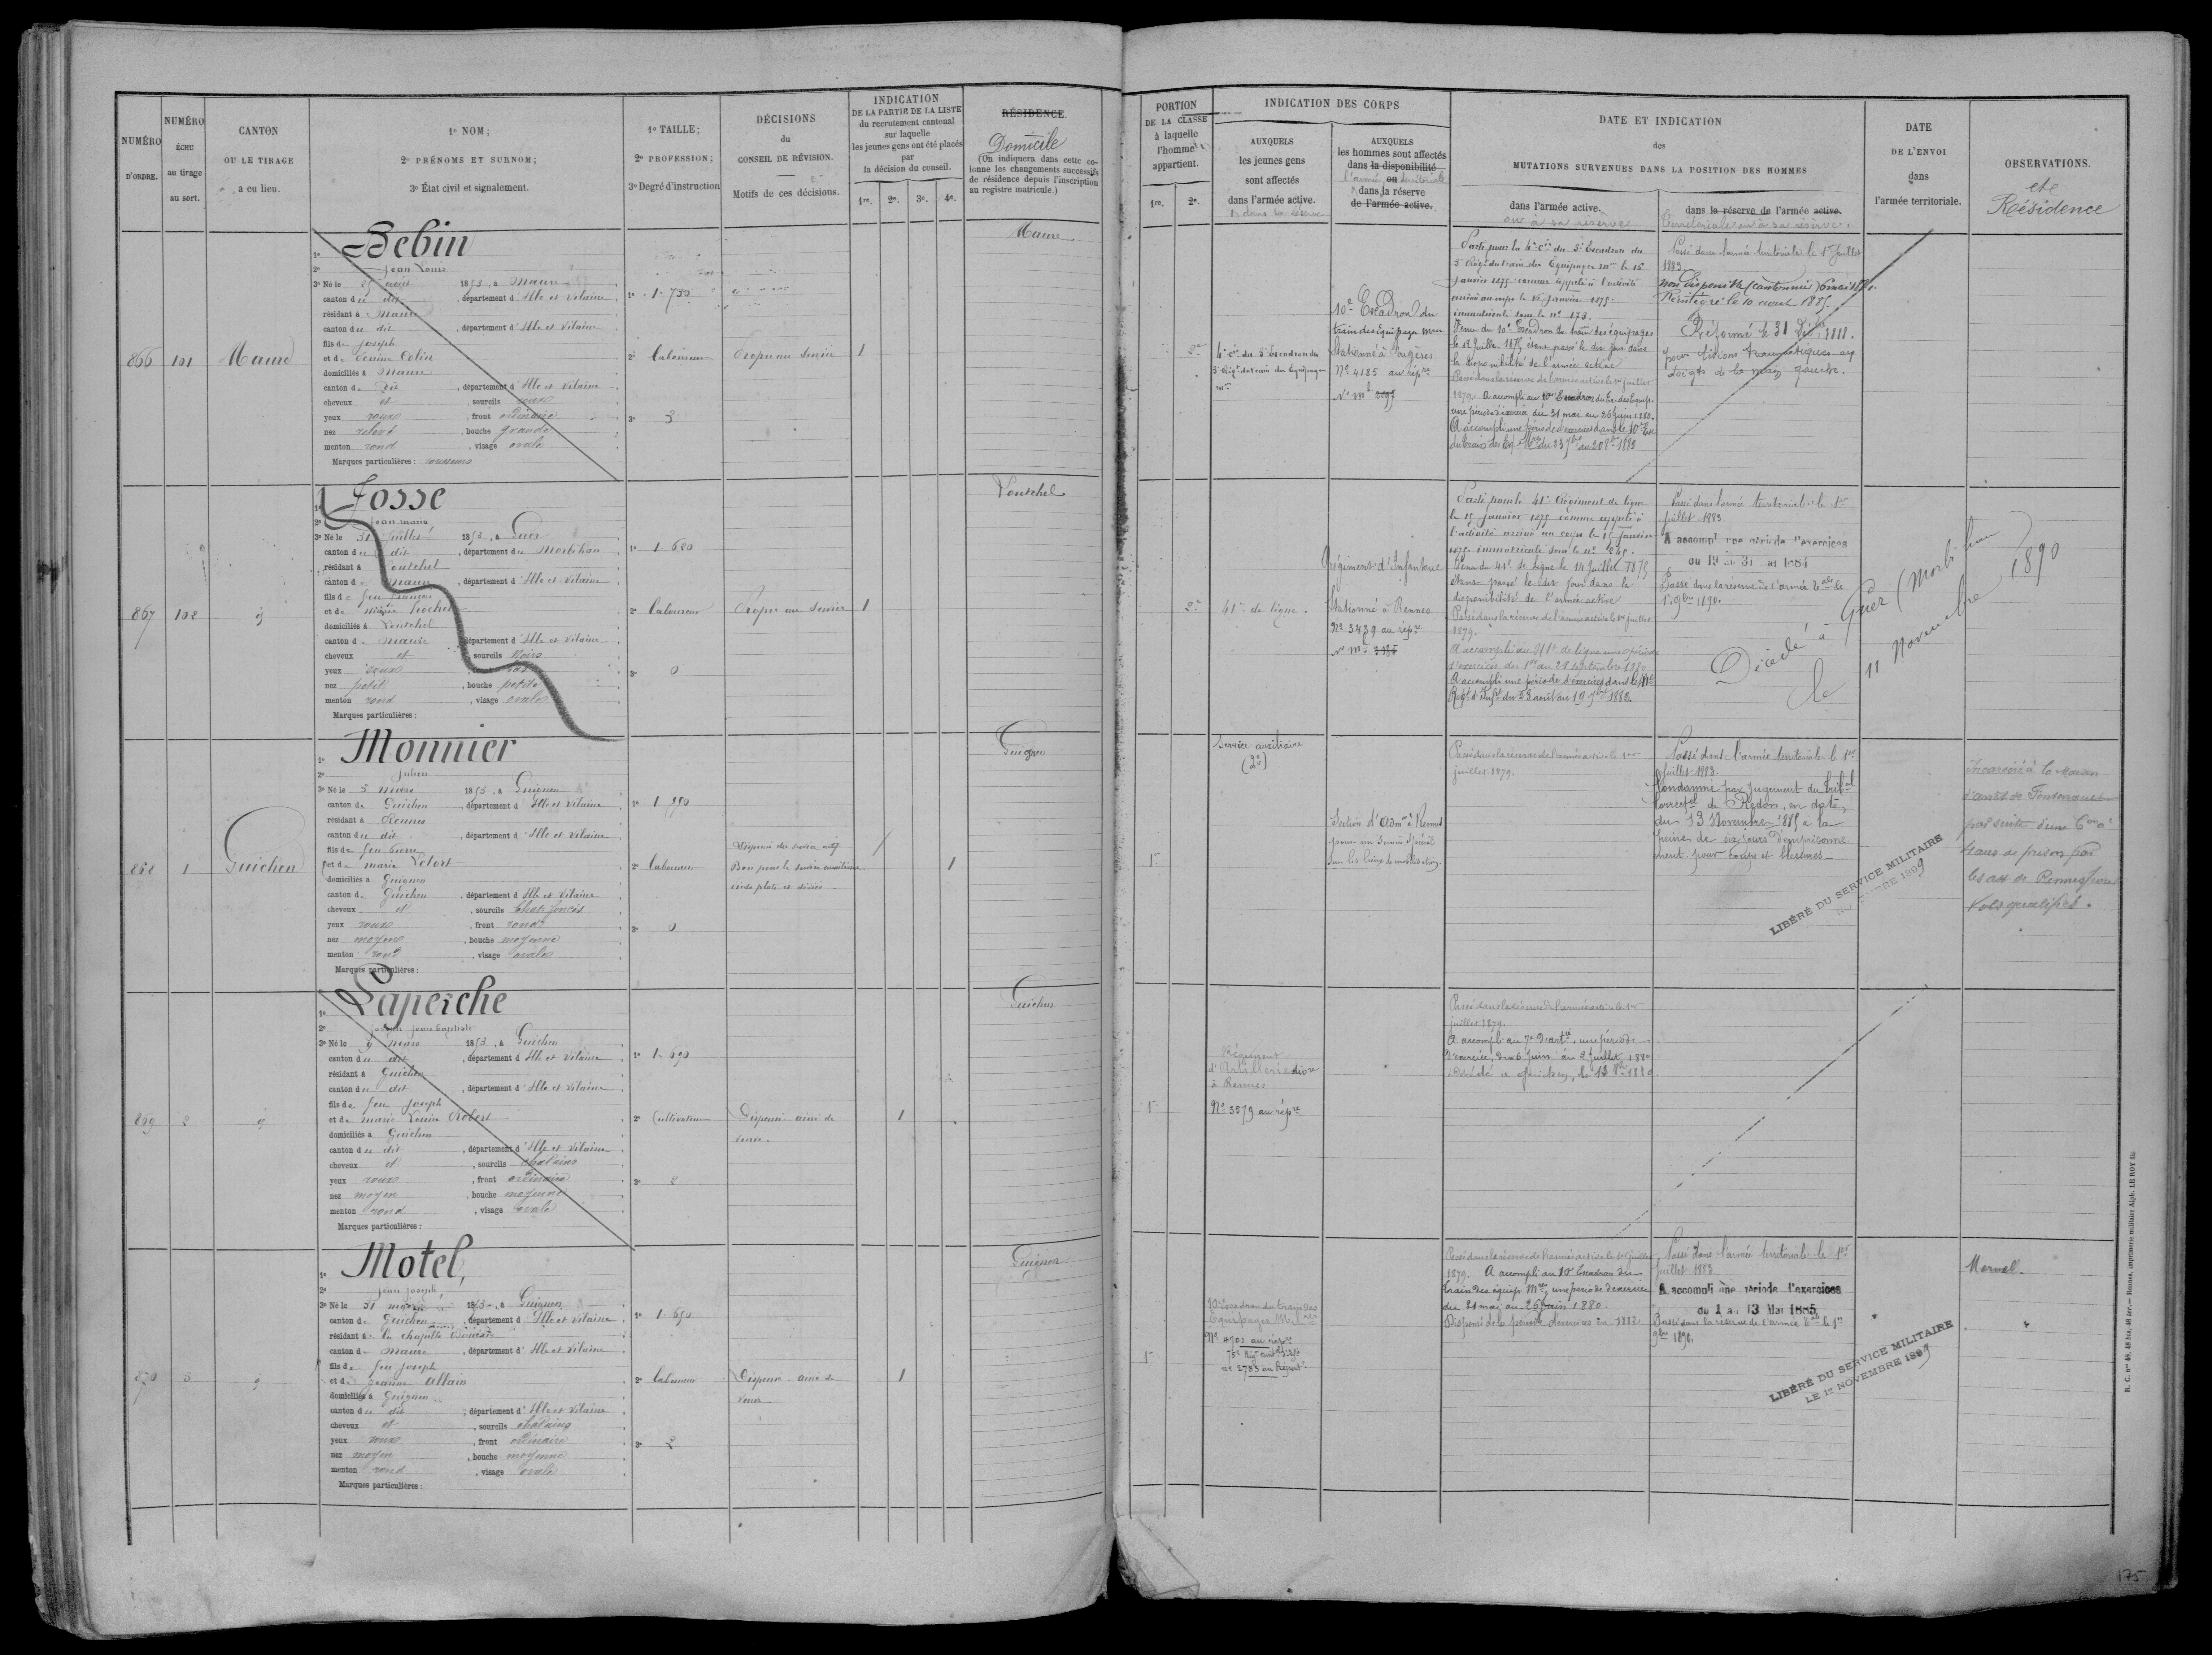 NUMÉRO D'ORDRE.
NUMÉRO ÉCHU au tirage au sort.
CANTON OU LE TIRAGE a eu lieu.
1º NOM;
2º PRÉNOMS ET SURNOM;
3º État civil et signalement.
1º TAILLE;
2º PROFESSION;
3º Degré d'instruction
DÉCISIONS du CONSEIL DE RÉVISION.
Motifs de ces décisions.
INDICATION
DE LA PARTIE DE LA LISTE
du recrutement cantonal
sur laquelle
les jeunes gens ont été placés
par
la décision du conseil.
1re. 2e. 3e. 4e.
RÉSIDENCE.
Domicile
(On indiquera dans cette co-
lonne les changements successifs
de résidence depuis l'inscription
au registre matricule.)
PORTION
DE LA CLASSE
à laquelle
l'homme
appartient.
1re. 2e.
INDICATION DES CORPS
AUXQUELS
les jeunes gens
sont affectés
dans l'armée active.
& dans la réserve
AUXQUELS
les hommes sont affectés
dans la disponibilité
l'armée ou territoriale
& dans la réserve
de l'armée active.
DATE ET INDICATION
des
MUTATIONS SURVENUES DANS LA POSITION DES HOMMES
dans l'armée active.
ou à sa réserve
dans la réserve de l'armée active.
Territoriale ou à sa réserve.
DATE
DE L'ENVOI
dans
l'armée territoriale.
OBSERVATIONS.
et
Résidence
866
101
Maure
1º Bebin
2º Jean Louis
3º Né le 25 août 1853, à Maure
canton du dit, département d'Ille et Vilaine
résidant à Maure
canton du dit, département d'Ille et Vilaine
fils de Joseph
et de Colin
domiciliés à Maure
canton du dit, département d'Ille et Vilaine
cheveux et, sourcils roux
yeux roux, front ordinaire
nez relevé, bouche grande
menton rond, visage ovale
Marques particulières : rousseurs
1º 1.730
2º laboureur
3º 3
Propre au service
1
Maure.
2e
4e Cie du 5e Escadron du
3e Régt du train des Equipages
mres
10e Escadron du
train des équipages mres
Stationné à Fougères
Nº 4185 au répre
Parti pour la 4e Cie du 5e Escadron du
3e Régt du train des Equipages mres le 15
janvier 1875 comme appelé à l'activité
arrivé au corps le 15 janvier 1875.
immatriculé sous le nº 173.
Venu du 10e Escadron du train des équipages
le 12 juillet 1875 étant passé le dit jour dans
la disponibilité de l'armée active
Passé dans la réserve de l'armée active le 1er juillet
1879. A accompli au 10e Escadron du tr. des équip.
une période d'exercices du 31 mai au 26 juin 1880.
A accompli une période d'exercices dans le 10e Esc
du train des Eq. Mres du 23 7bre au 20 8bre 1882
Passé dans l'armée territoriale le 1er juillet
1883
Non disponible (cantonnier)
Réintégré le 10 avril 1885.
Réformé le 31
pour lésions traumatiques aux
doigts de la main gauche.
867
102
id
1º Josse
2º Jean Marie
3º Né le 31 juillet 1853, à Guer
canton du dit, département du Morbihan
résidant à Loutehel
canton de Maure, département d'Ille et Vilaine
fils de feu François
et de Marie
domiciliés à Loutehel
canton de Maure, département d'Ille et Vilaine
cheveux et, sourcils noirs
yeux roux
nez petit, bouche petite
menton rond, visage ovale
Marques particulières :
1º 1.680
2º laboureur
3º 0
Propre au service
1
Loutehel
2e
41e de ligne.
Régiment d'Infanterie
Stationné à Rennes
Nº 3439 au répre
Parti pour le 41e Régiment de ligne
le 15 janvier 1875 comme appelé à
l'activité arrivé au corps le 15 janvier
1875. immatriculé sous le nº
Venu du 41e de ligne le 14 juillet 1875
étant passé le dit jour dans la
disponibilité de l'armée active
Passé dans la réserve de l'armée active le 1er juillet
1879.
A accompli au 41e de ligne une période
d'exercices du 1er au 28 septembre 1880
A accompli une période d'exercices dans le 41e
Régt d'Infie du 23 août au 19 7bre 1882.
Passé dans l'armée territoriale le 1er
juillet 1883.
A accompli une période d'exercices
du 19 au 31 1884
Passé dans la réserve de l'armée tale le
1er 9bre 1890.
Décédé à Guer (Morbihan)
le 11 Novembre 1890
868
1
Guichen
1º Monnier
2º Julien
3º Né le 3 mars 1853, à Guignen
canton de Guichen, département d'Ille et Vilaine
résidant à Rennes
canton du dit, département d'Ille et Vilaine
fils de feu Pierre
et de Marie
domiciliés à Guignen
canton de Guichen, département d'Ille et Vilaine
cheveux et, sourcils chat. foncés
yeux roux, front rond
nez moyen, bouche moyenne
menton rond, visage ovale
Marques particulières :
2º laboureur
3º 0
Dispensé du service actif
Bon pour le service auxiliaire
pieds plats et déviés
1
Guignen
1e
Service auxiliaire
(2e)
Section d'Admon à Rennes
pour un service spécial
sur les lieux de mobilisation.
Passé dans la réserve de l'armée active le 1er
juillet 1879.
Passé dans l'armée territoriale le 1er
juillet 1883.
Condamné par jugement du tribal
correctel de Redon, en date
du 13 Novembre 1885 à la
peine de six jours d'emprisonne
ment pour coups et blessures
LIBÉRÉ DU SERVICE MILITAIRE
Incarcéré à la Maison
d'arrêt de
par suite d'une Con à
4 ans de prison par
les ass. de Rennes pour
Vols qualifiés.
869
2
id
1º Laperche
2º Joseph Jean Baptiste
3º Né le 9 mars 1853, à Guichen
canton du dit, département d'Ille et Vilaine
résidant à Guichen
canton du dit, département d'Ille et Vilaine
fils de feu Joseph
et de Marie Louise Robert
domiciliés à Guichen
canton du dit, département d'Ille et Vilaine
cheveux et, sourcils châtains
yeux roux, front ordinaire
nez moyen, bouche moyenne
menton rond, visage ovale
Marques particulières :
1º 1.690
2º Cultivateur
3º 2
Dispensé aîné de
veuve.
1
Guichen
1e
Régiment
d'Artillerie divre
à Rennes
Nº 3579 au répre
Passé dans la réserve de l'armée active le 1er
juillet 1879.
A accompli au 7e d'artie, une période
d'exercice, du 6 juin au 2 juillet 1880
Décédé à Guichen, le 18 8bre 1880.
870
3
id
1º Motel,
2º Jean Joseph
3º Né le 31 1853, à Guignen
canton de Guichen, département d'Ille et Vilaine
résidant à la chapelle Bouëxic
canton de Maure, département d'Ille et Vilaine
fils de feu Joseph
et de Jeanne Allain
domiciliés à Guignen
canton du dit, département d'Ille et Vilaine
cheveux et, sourcils châtains
yeux roux, front ordinaire
nez moyen, bouche moyenne
menton rond, visage ovale
Marques particulières :
1º 1.650
2º laboureur
3º 2
Dispensé aîné de
veuve.
1
Guignen
1e
10e Escadron du train des
Equipages Mres
Nº 4901 au répre
75e Régt
nº 2783 au Répert.
Passé dans la réserve de l'armée active le 1er juillet
1879. A accompli au 10e Escadron du
train des équip. Mres, une période d'exercice
du 31 mai au 26 juin 1880.
Dispensé de la période d'exercices en 1882
Passé dans l'armée territoriale le 1er
juillet 1883.
A accompli une période d'exercices
du 1 au 13 Mai 1885
Passé dans la réserve de l'armée tale le 1er
9bre 1890.
LIBÉRÉ DU SERVICE MILITAIRE
LE 1er NOVEMBRE 1899
Mernel.
R. C. nos 48, 48 bis, 48 ter.— Rennes, imprimerie militaire Alph. LE ROY fils
175